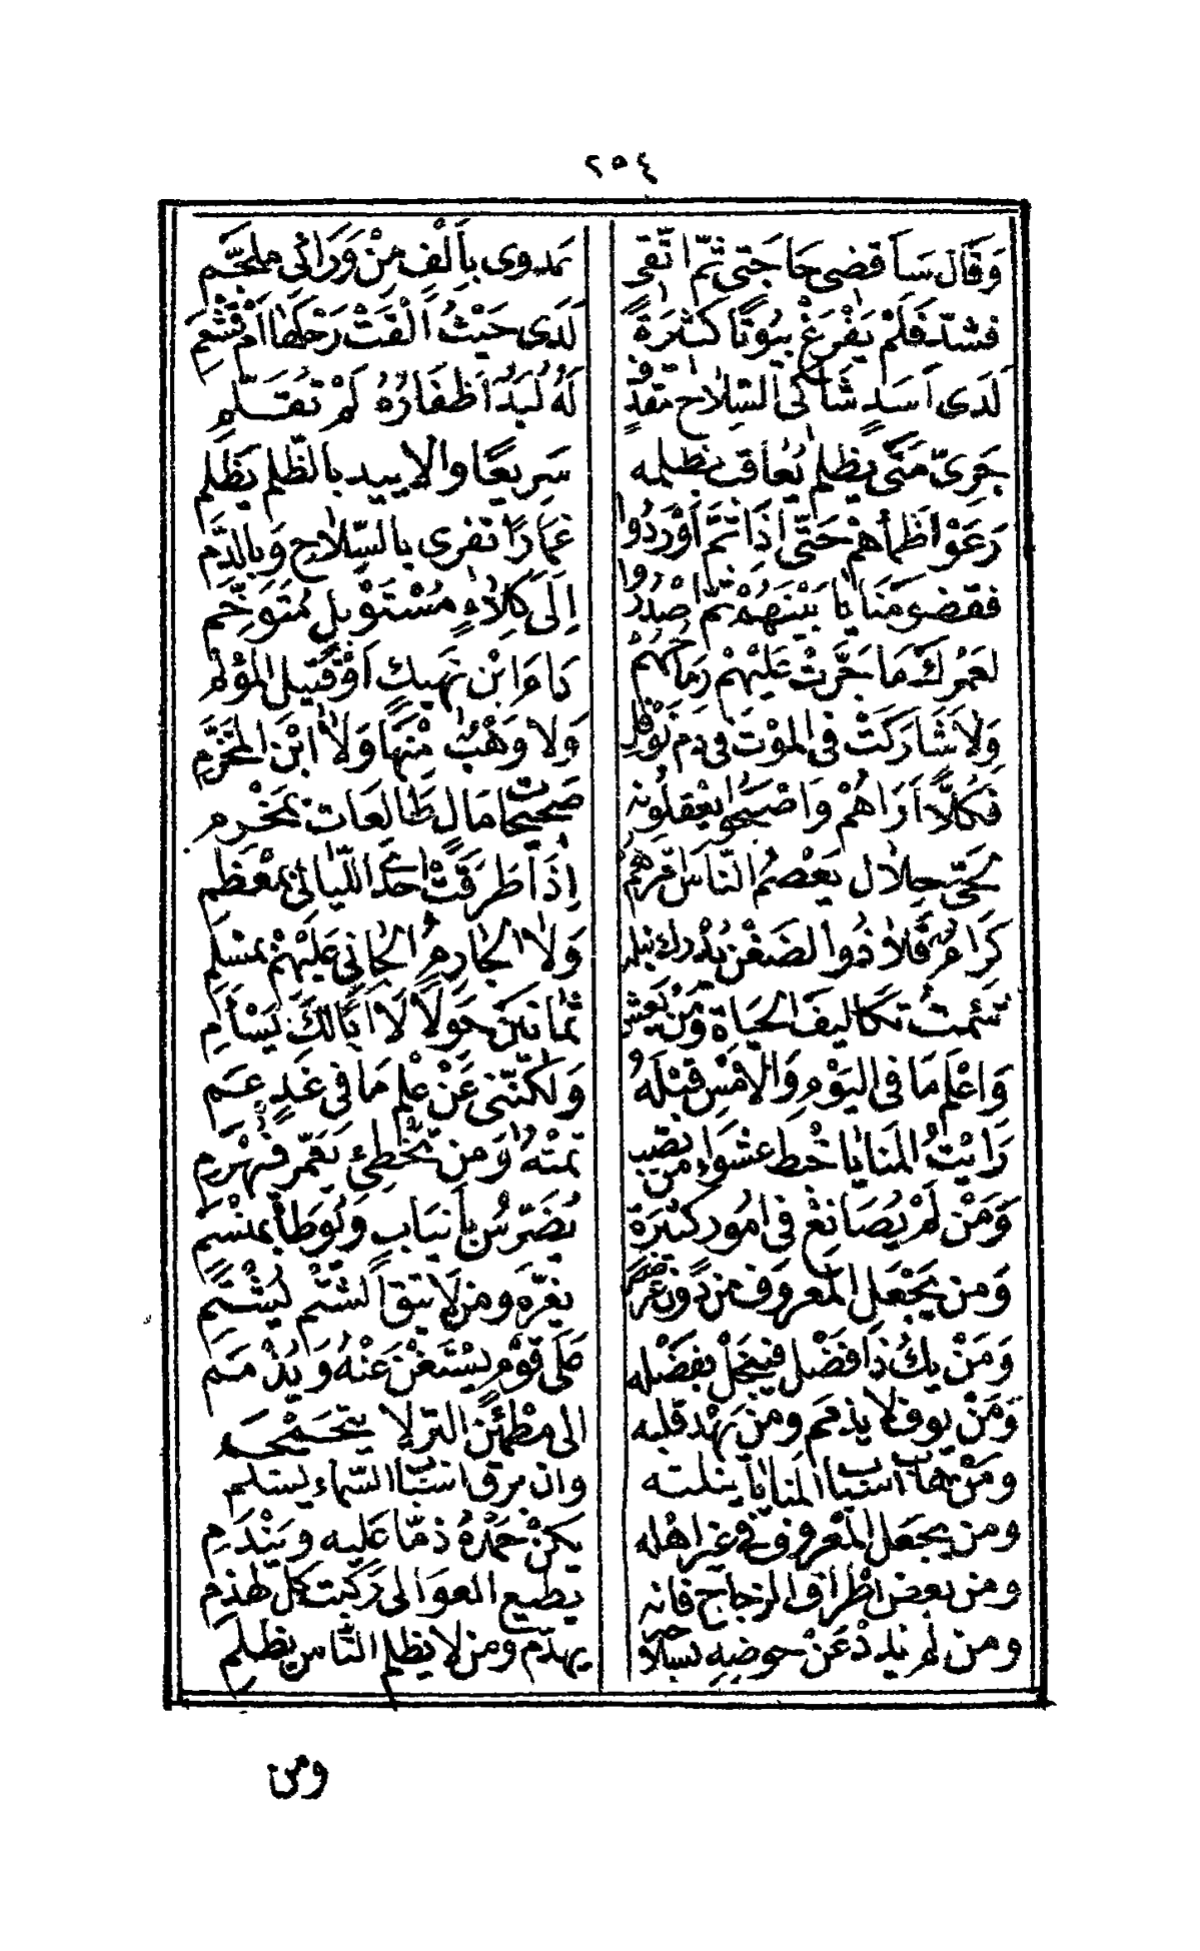 ٢٥٤
وَقَالَ سَأَقضى حَاجَتِى ثُمَّ اَتَّقى عَدوى بِاَلْفٍ مِنْ وَرَائى ملجَّم
فشدّ فَلَمْ يَفْرَغْ بُيُوتًا كَثيرَةً لَدَى حَيْثُ اَلْقَتْ رَحْلَهَا اُمّ قَشْعَمِ
لَدَى اَسَدٍ شَاكى السِّلاحِ مقذّفٍ لَهُ لُبَدٌ اَظفَارُهُ لَمْ تُقَلَّم
جَرىّ مَتَى يظلم يُعَاقب بظلمه سَرِيعًا والا يبد بالظّلم يَظْلِم
رَعَوْا ظمأهمْ حَتّى اذَا تَمَّ اَوْرَدُوا غمَارًا تفرى بالسِّلاحِ وَبالدَّم
فقضو مَنَايَا بَيْنَهُمْ ثمّ اصْدَرُوا اِلَى كَلِاءٍ مُسْتَوْبلٍ مُتَوَخّم
لعَمْرك مَا جَرَّتْ عَلَيْهمْ رِمَاحُهُمْ دَمَ ابْن نَهيكٍ اَوْ قَتيل المؤلم
وَلاَ شَارَكَتْ فى الموْت فى دَم نَوْفلٍ وَلا وَهْبٍ مِنْهَا وَلاَ ابْن المخَزّم
فَكُلاًّ اَرَاهُمْ وَاصْبَحُوا يعْقلُونه صَحيحات مَالٍ طَالعَات بمَخْرم
لحَىّ حلال يَعْصمُ النّاسَ اَمْرهُمْ اِذَا طَرَقَتْ احْدَى اللّيالى بمعْظَم
كرَامٍ فَلا ذُوا الضّغْن يُدْرك تبله وَلا الجارمُ الجانى عَلَيْهمْ بمسْلم
سَئمتُ تكاليفَ الحيَاة وَمَنْ يَعش ثمَانينَ حَوْلاً لاَ اَبَالَكَ يَسْأم
وَاعْلَم مَا فى اليَوْم وَالامْس قبْلهُ وَلكنّنى عَنْ علم مَا فى غدٍ عَم
رَايْتُ المنَايَا خبْط عشواء من تصب تمتْهُ وَمن تخْطئ يعَمّر فيهْرَم
وَمَنْ لَمْ يُصَانعْ فى اُمُور كثيرَة يُضَرّسْ بأنيَاب وَيُوطَأ بمنْسم
وَمن يجْعَل المعرُوف من دُون عرْضه يفرّه ومن لا يتق الشّتْم يُشْتَم
وَمَنْ يكُ ذَا فَضْل فَيبْخَلْ بفضْله عَلَى قَوْم يسْتَغْنَ عَنْهُ وَيُذْمَم
وَمَنْ يوف لا يذمم ومن يُهْد قلبه الى مطْمَئنّ البرّ لا يتجَمْجَم
وَمَنْ هاب اسْبَاب المنَايَا ينلنه وان يرق اسْبَاب السّماء بسلم
ومن يجعَل المعْروف فى غير اهْله يكنْ حَمْدُهُ ذمّا عَليه ويَنْدَم
ومن يعص اطْرَاف الزجاج فانه يطيع العوَالى رُكّبت كل لهذم
ومن لم يذدْ عَنْ حوضه بسلاحه يهدّم ومن لا يظلم النّاس يظلم
ومن